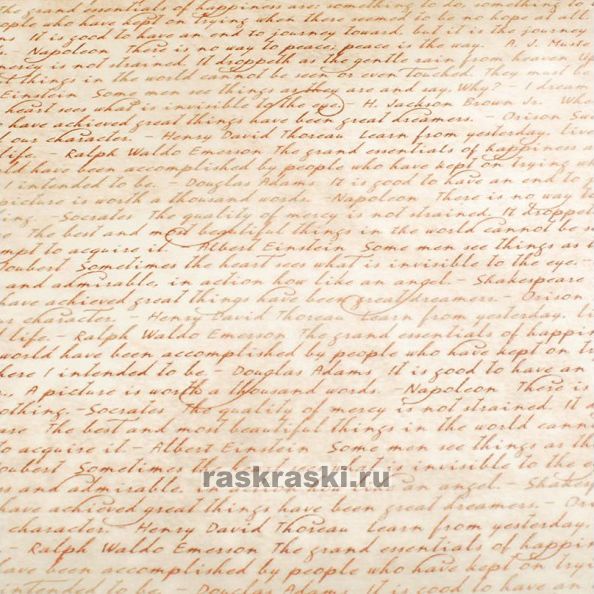 The great essentials of happiness are: something to do, something to
people who have kept on trying when there seemed to be no hope at all
It is good to have an end to journey toward, but it is the journey
- Napoleon There is no way to peace; peace is the way. A. J. Muste
mercy is not strained. It droppeth as the gentle rain from heaven up
things in the world cannot be seen or even touched. They must be
Einstein Some men see things as they are and say, Why? - I dream
heart sees what is invisible to the eye - H. Jackson Brown Jr. Who
have achieved great things have been great dreamers. - Orison Swe
your character. - Henry David Thoreau Learn from yesterday, live
life. - Ralph Waldo Emerson The grand essentials of happiness a
ld have been accomplished by people who have kept on trying wh
I intended to be. - Douglas Adams It is good to have an end to
picture is worth a thousand words. -Napoleon There is no way to
ing. -Socrates The quality of mercy is not strained. It droppet
The best and most beautiful things in the world cannot be se
mpt to acquire it. - Albert Einstein Some men see things as t
oubert Sometimes the heart sees what is invisible to the eye. -
and admirable, in action how like an angel. - Shakespeare
have achieved great things have been great dreamers. - Orison
character. - Henry David Thoreau Learn from yesterday, li
life. - Ralph Waldo Emerson The grand essentials of happin
world have been accomplished by people who have kept on try
here I intended to be. - Douglas Adams It is good to have an
A picture is worth a thousand words. -Napoleon There is
othing. -Socrates The quality of mercy is not strained. It d
are The best and most beautiful things in the world cann
to acquire it. - Albert Einstein Some men see things as th
oubert Sometimes the heart sees what is invisible to the e
raskraski.ru
and admirable, in action how like an angel. - Shakesp
have achieved great things have been great dreamers. - Ori
character. - Henry David Thoreau Learn from yesterday,
- Ralph Waldo Emerson The grand essentials of happin
have been accomplished by people who have kept on try
intended to be. - Douglas Adams It is good to have an